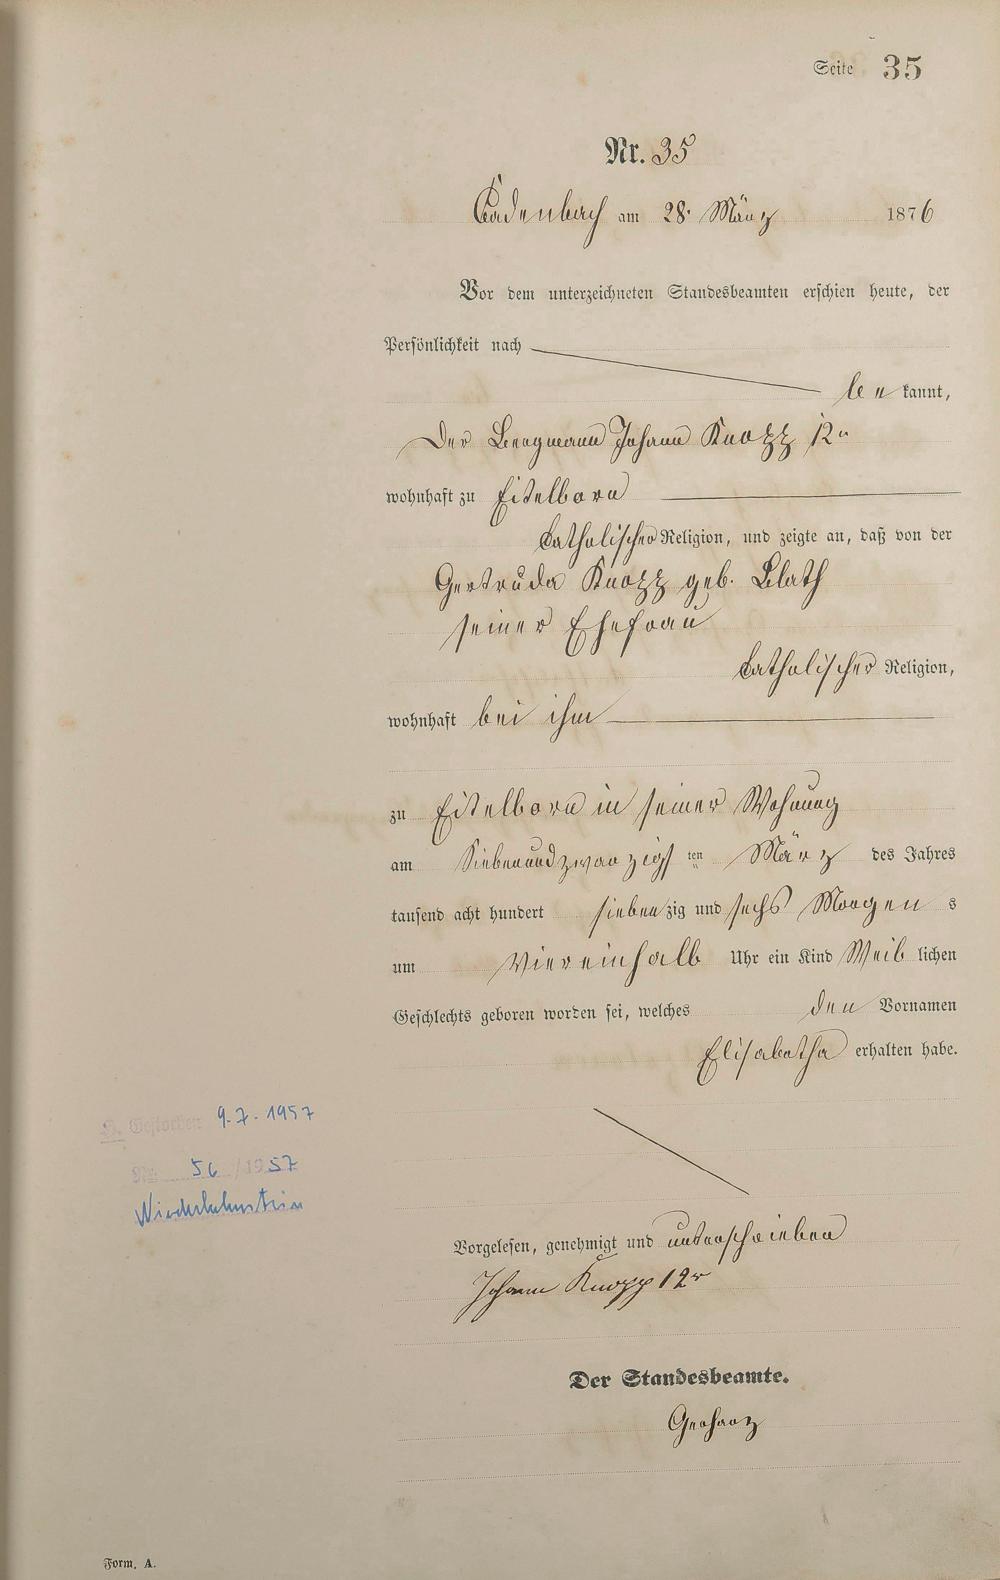 Seite 35
Nr. 35
Cadenbach am 28. März 1876
Vor dem unterzeichneten Standesbeamten erschien heute, der
Persönlichkeit nach
be kannt,
Der Bergmann Johann Knopp 12r
wohnhaft zu Eitelborn
katholischer Religion, und zeigte an, daß von der
Gertruda Knopp geb. Blath
seiner Ehefrau
katholischer Religion,
wohnhaft bei ihm
zu Eitelborn in seiner Wohnung
am Siebenundzwanzigs ten März des Jahres
tausend acht hundert sieben zig und sechs Morgen s
um Viereinhalb Uhr ein Kind Weib lichen
Geschlechts geboren worden sei, welches den Vornamen
Elisabetha erhalten habe.
Gestorben 9.7.1957
Nr. 56/1957
Niederlahnstein
Vorgelesen, genehmigt und unterschrieben
Johann Knopp 12r
Der Standesbeamte.
Gerharz
Form. A.